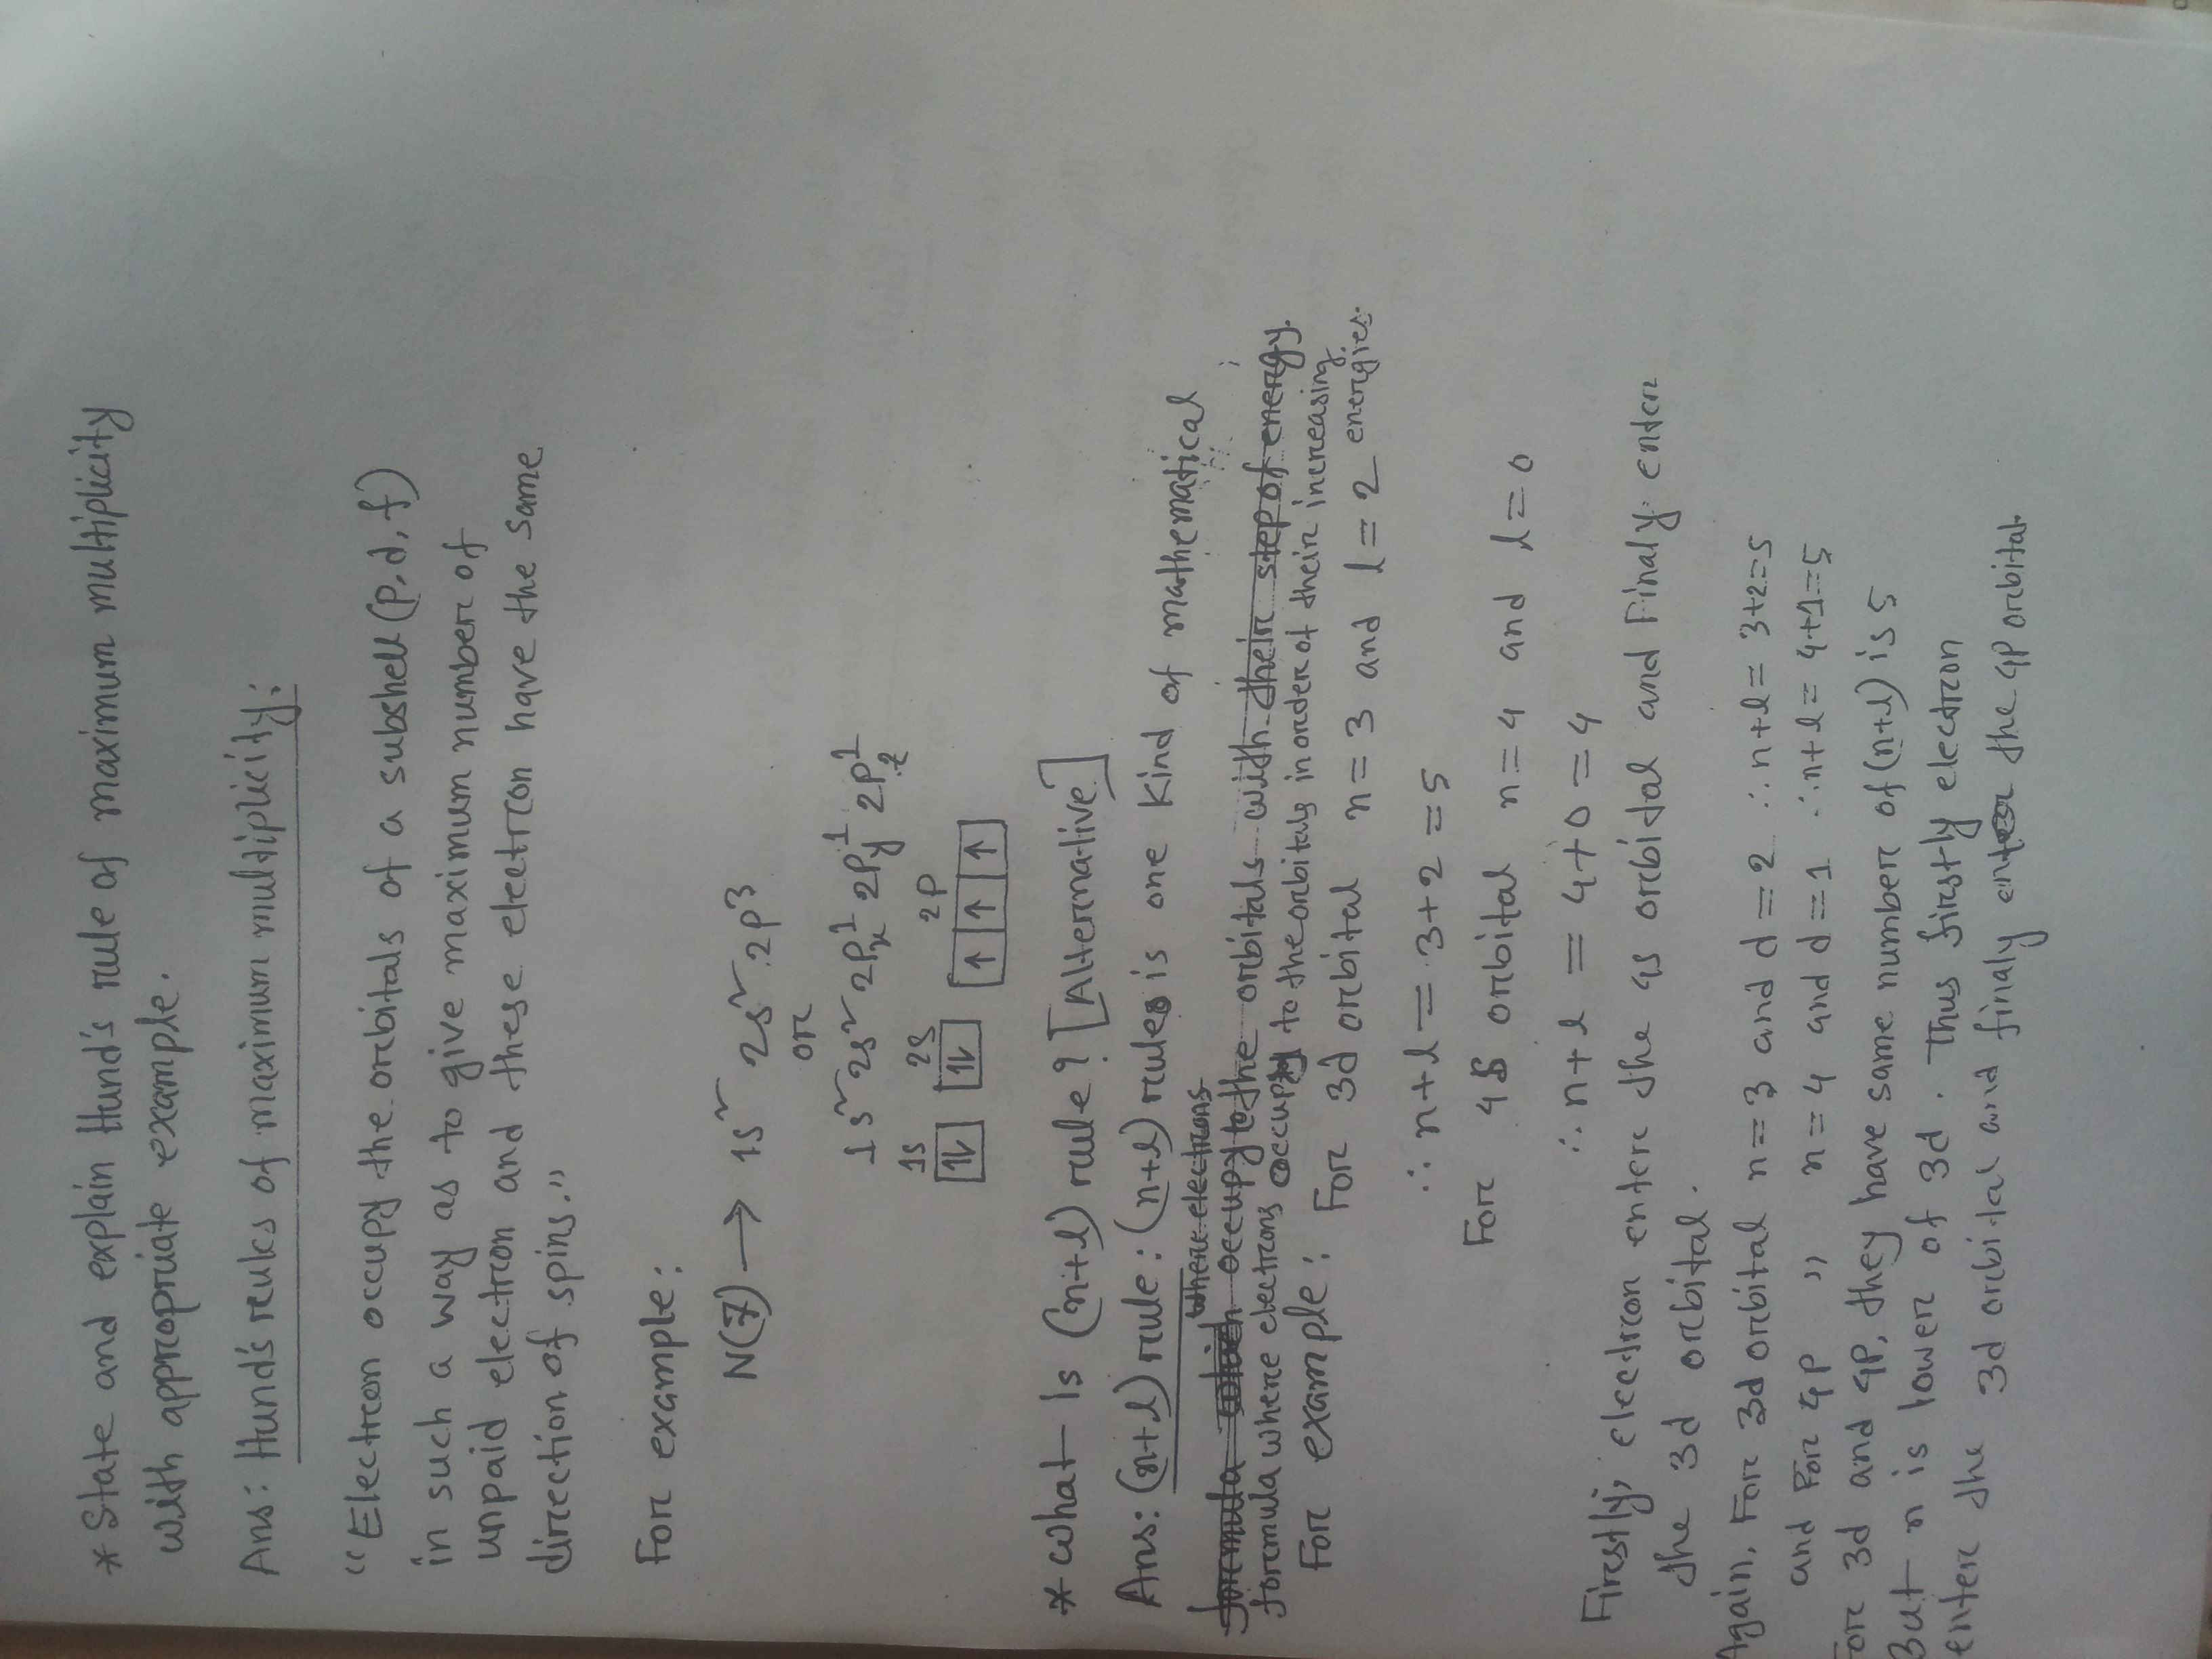 * State and explain Hund's rule of maximum multiplicity
with appropriate example.
Ans: Hund's reules of maximum multiplicity:
"Electron occupy the orbitals of a subshell (p, d, f)
in such a way as to give maximum number of
unpaid electron and these electron have the same
direction of spins."
For example:
N(7) → 1s² 2s² 2p³
or
1s² 2s² 2Px¹ 2Py¹ 2Pz¹
1s 2s 2P
↑↓ ↑↓ ↑ ↑ ↑
* What Is (n+l) rule? [Alternative]
Ans: (n+l) rule: (n+l) rules is one kind of mathematical
where electrons
formula which occupy to the orbitals with their step of energy.
formula where electrons occupy to the orbitals in order of their increasing
energies.
For example: For 3d orbital n = 3 and l = 2
∴ n+l = 3+2 = 5
For 4s orbital n = 4 and l = 0
∴ n+l = 4+0 = 4
Firstly, electron enter the 4s orbital and Finaly enter
the 3d orbital.
Again, For 3d orbital n = 3 and d = 2 ∴ n+l = 3+2=5
and For 4P " n = 4 and d = 1 ∴ n+l = 4+1=5
For 3d and 4P, they have same number of (n+l) is 5
But n is lower of 3d. Thus firstly electron
enter the 3d orbital and finaly enter the 4P orbital.